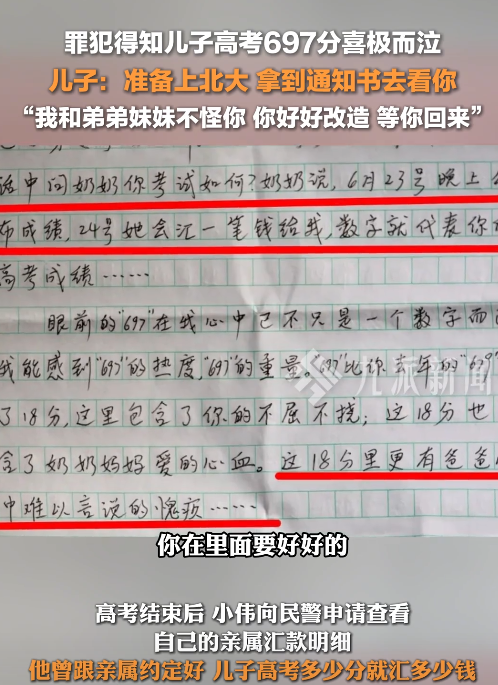 罪犯得知儿子高考697分喜极而泣
儿子：准备上北大 拿到通知书去看你
“我和弟弟妹妹不怪你 你好好改造 等你回来”
话中问奶奶你考试如何？奶奶说，6月23号晚上
布成绩，24号她会汇一笔钱给我，数字就代表你
高考成绩……
眼前的“697”在我心中已不只是一个数字而
我能感到“697”的热度，“697”的重量，“697”比你去年的“679”
了18分，这里包含了你的不屈不挠；这18分也
含了奶奶妈妈爱的心血。这18分里更有爸爸
中难以言说的愧疚……
九派新闻
你在里面要好好的
高考结束后 小伟向民警申请查看
自己的亲属汇款明细
他曾跟亲属约定好 儿子高考多少分就汇多少钱